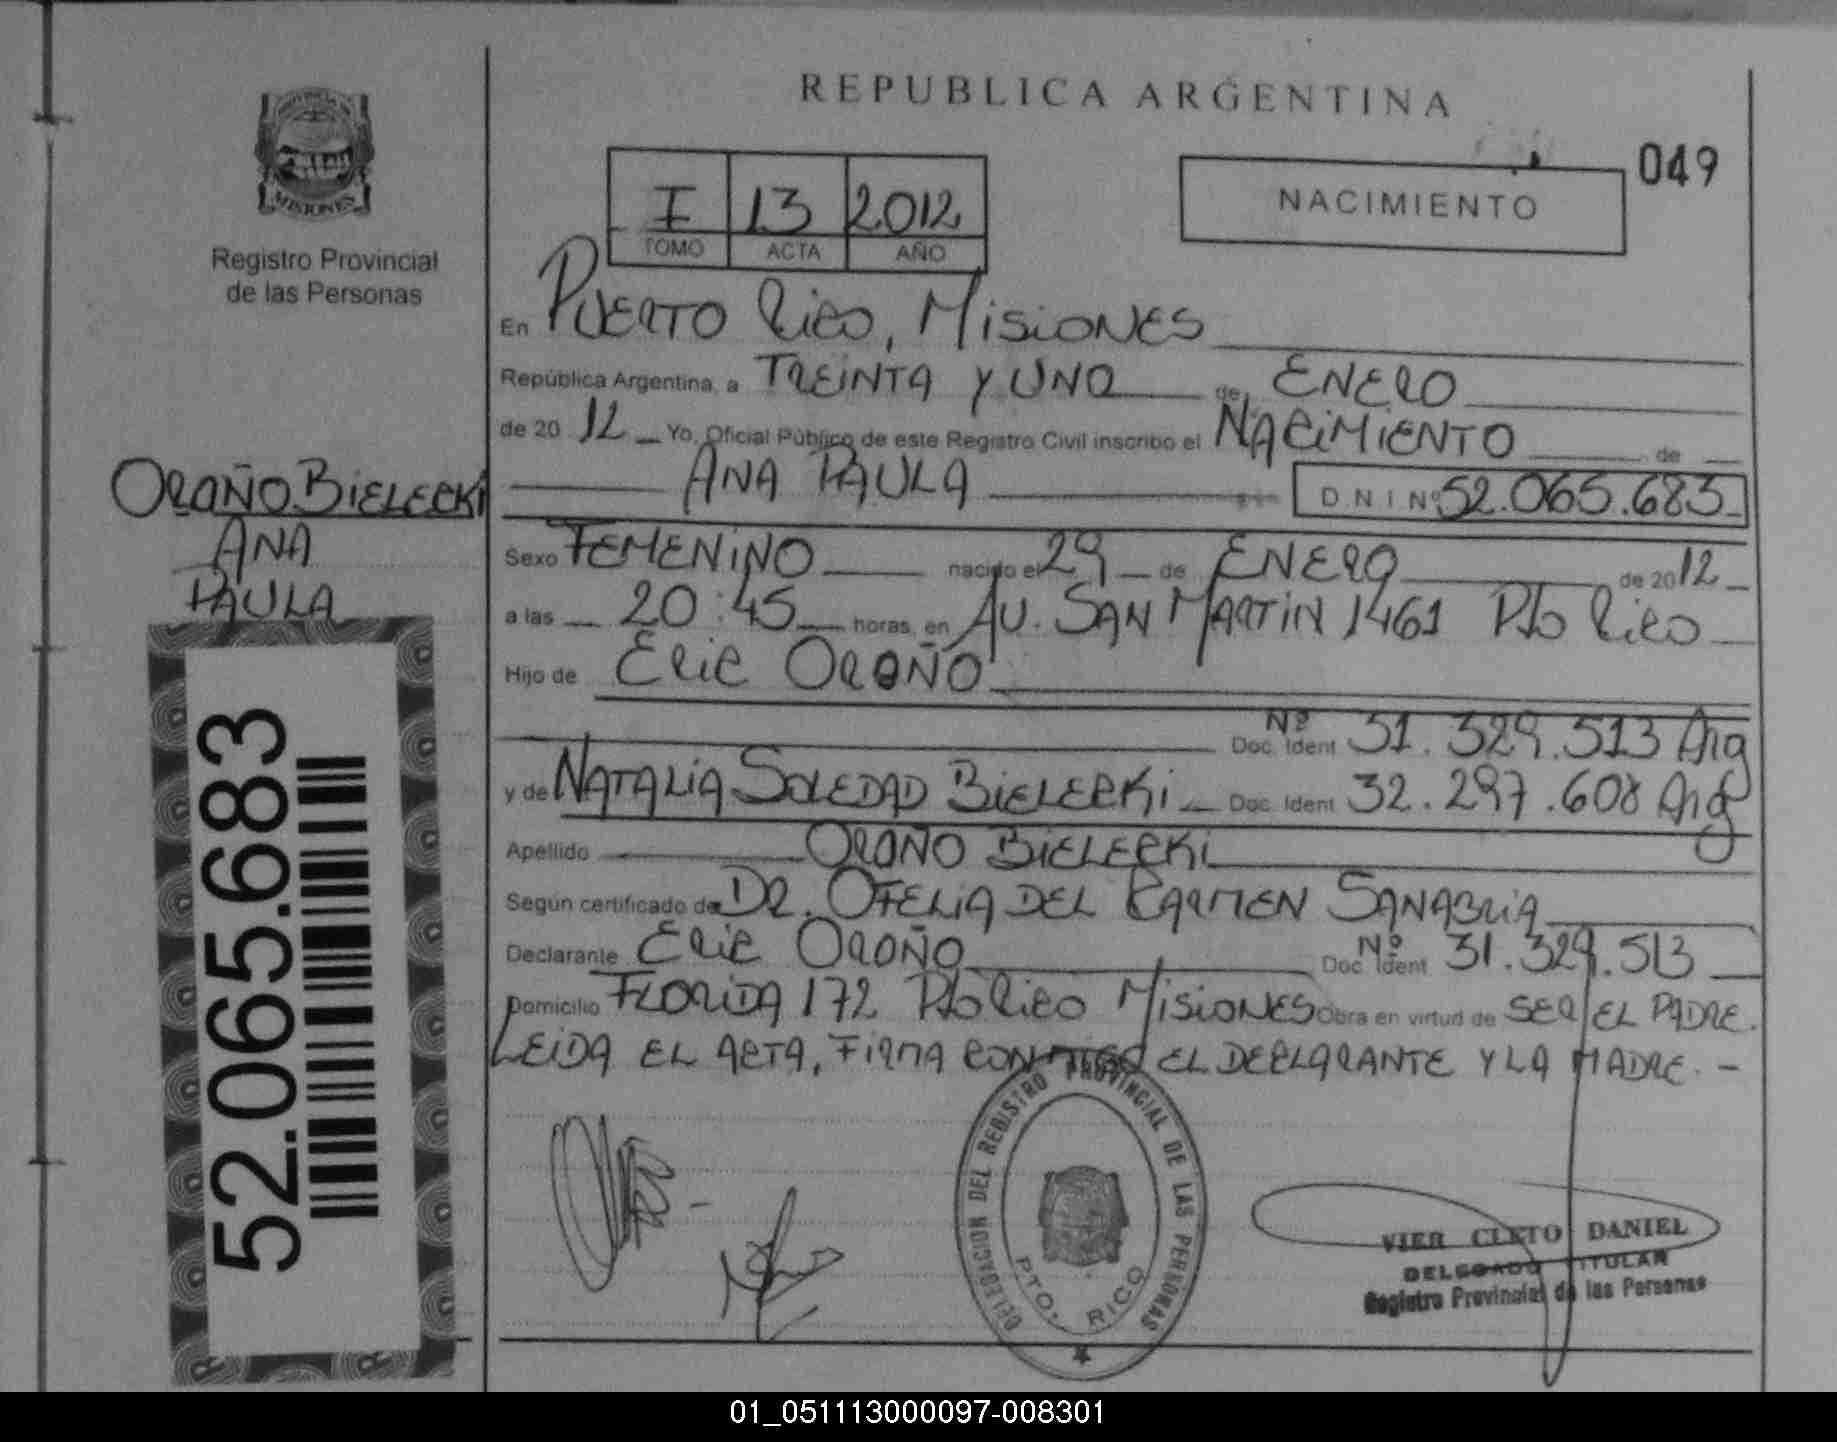 REPUBLICA ARGENTINA
049
NACIMIENTO
I 13 2012
TOMO ACTA AÑO
MISIONES
Registro Provincial
de las Personas
En PUERTO RICO, MISIONES
República Argentina, a TREINTA Y UNO de ENERO
de 2012 Yo, Oficial Público de este Registro Civil inscribo el NACIMIENTO de
ANA PAULA D N I Nº 52.065.683
OROÑO BIELECKI
ANA
PAULA
Sexo FEMENINO nacido el 29 de ENERO de 2012
a las 20:45 horas, en AV. SAN MARTIN 1461 Pto Rico
Hijo de ERIC OROÑO
Nº Doc. Ident 31.329.513 Arg
y de NATALIA SOLEDAD BIELECKI Doc. Ident 32.297.608 Arg
Apellido OROÑO BIELECKI
Según certificado de DR. OFELIA DEL CARMEN SANABRIA
Declarante ERIC OROÑO Nº Doc. Ident 31.329.513
Domicilio FLORIDA 172 Pto Rico MISIONES Obra en virtud de SER EL PADRE.
LEIDA EL ACTA, FIRMA CONMIGO EL DECLARANTE Y LA MADRE. -
52.065.683
DELEGACION DEL REGISTRO PROVINCIAL DE LAS PERSONAS
PTO. RICO
VIER CLETO DANIEL
DELEGADO TITULAR
Registro Provincial de las Personas
01_051113000097-008301